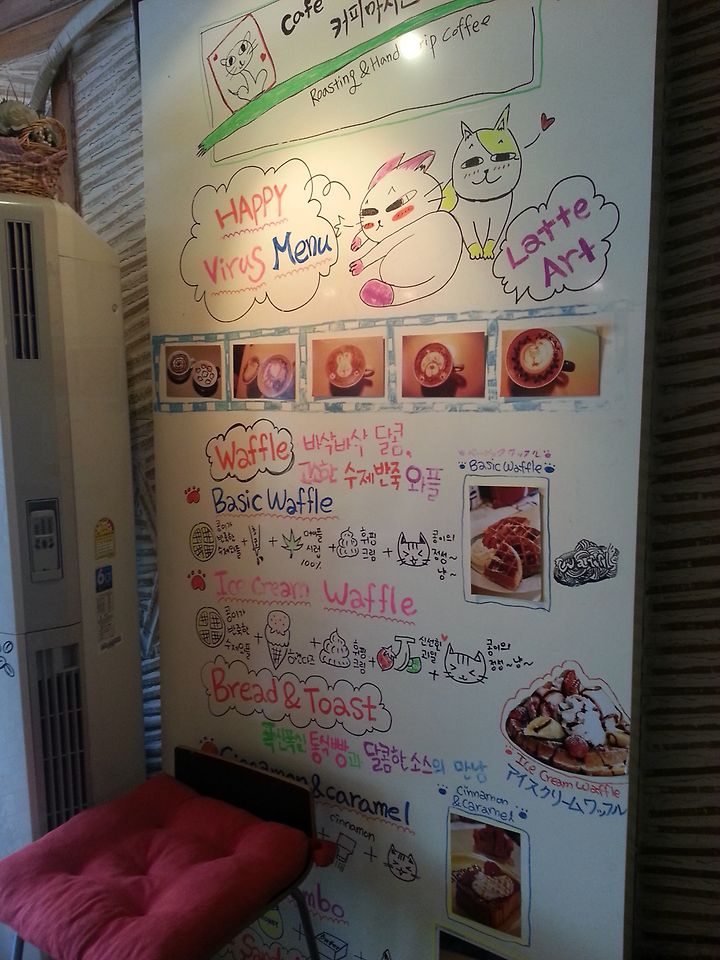 Cafe 커피마시는
Roasting & Hand Drip Coffee
HAPPY
Virus Menu
Latte
Art
Waffle
바삭바삭 달콤,
고소한 수제반죽 와플
Basic Waffle
ベーシックワッフル
Basic Waffle
콩이가
반죽한
수제와플
+
+
메이플
시럽
100%
+
휘핑
크림
+
콩이의
정성~
냥~
Waffle
Ice Cream Waffle
콩이가
반죽한
수제와플
+
+
휘핑
크림
+
신선한
과일
+
콩이의
정성~냥~
Bread & Toast
폭신폭신 통식빵과 달콤한 소스의 만남
Ice Cream Waffle
アイスクリームワッフル
Cinnamon & caramel
cinnamon
& caramel
+
cinnamon
+